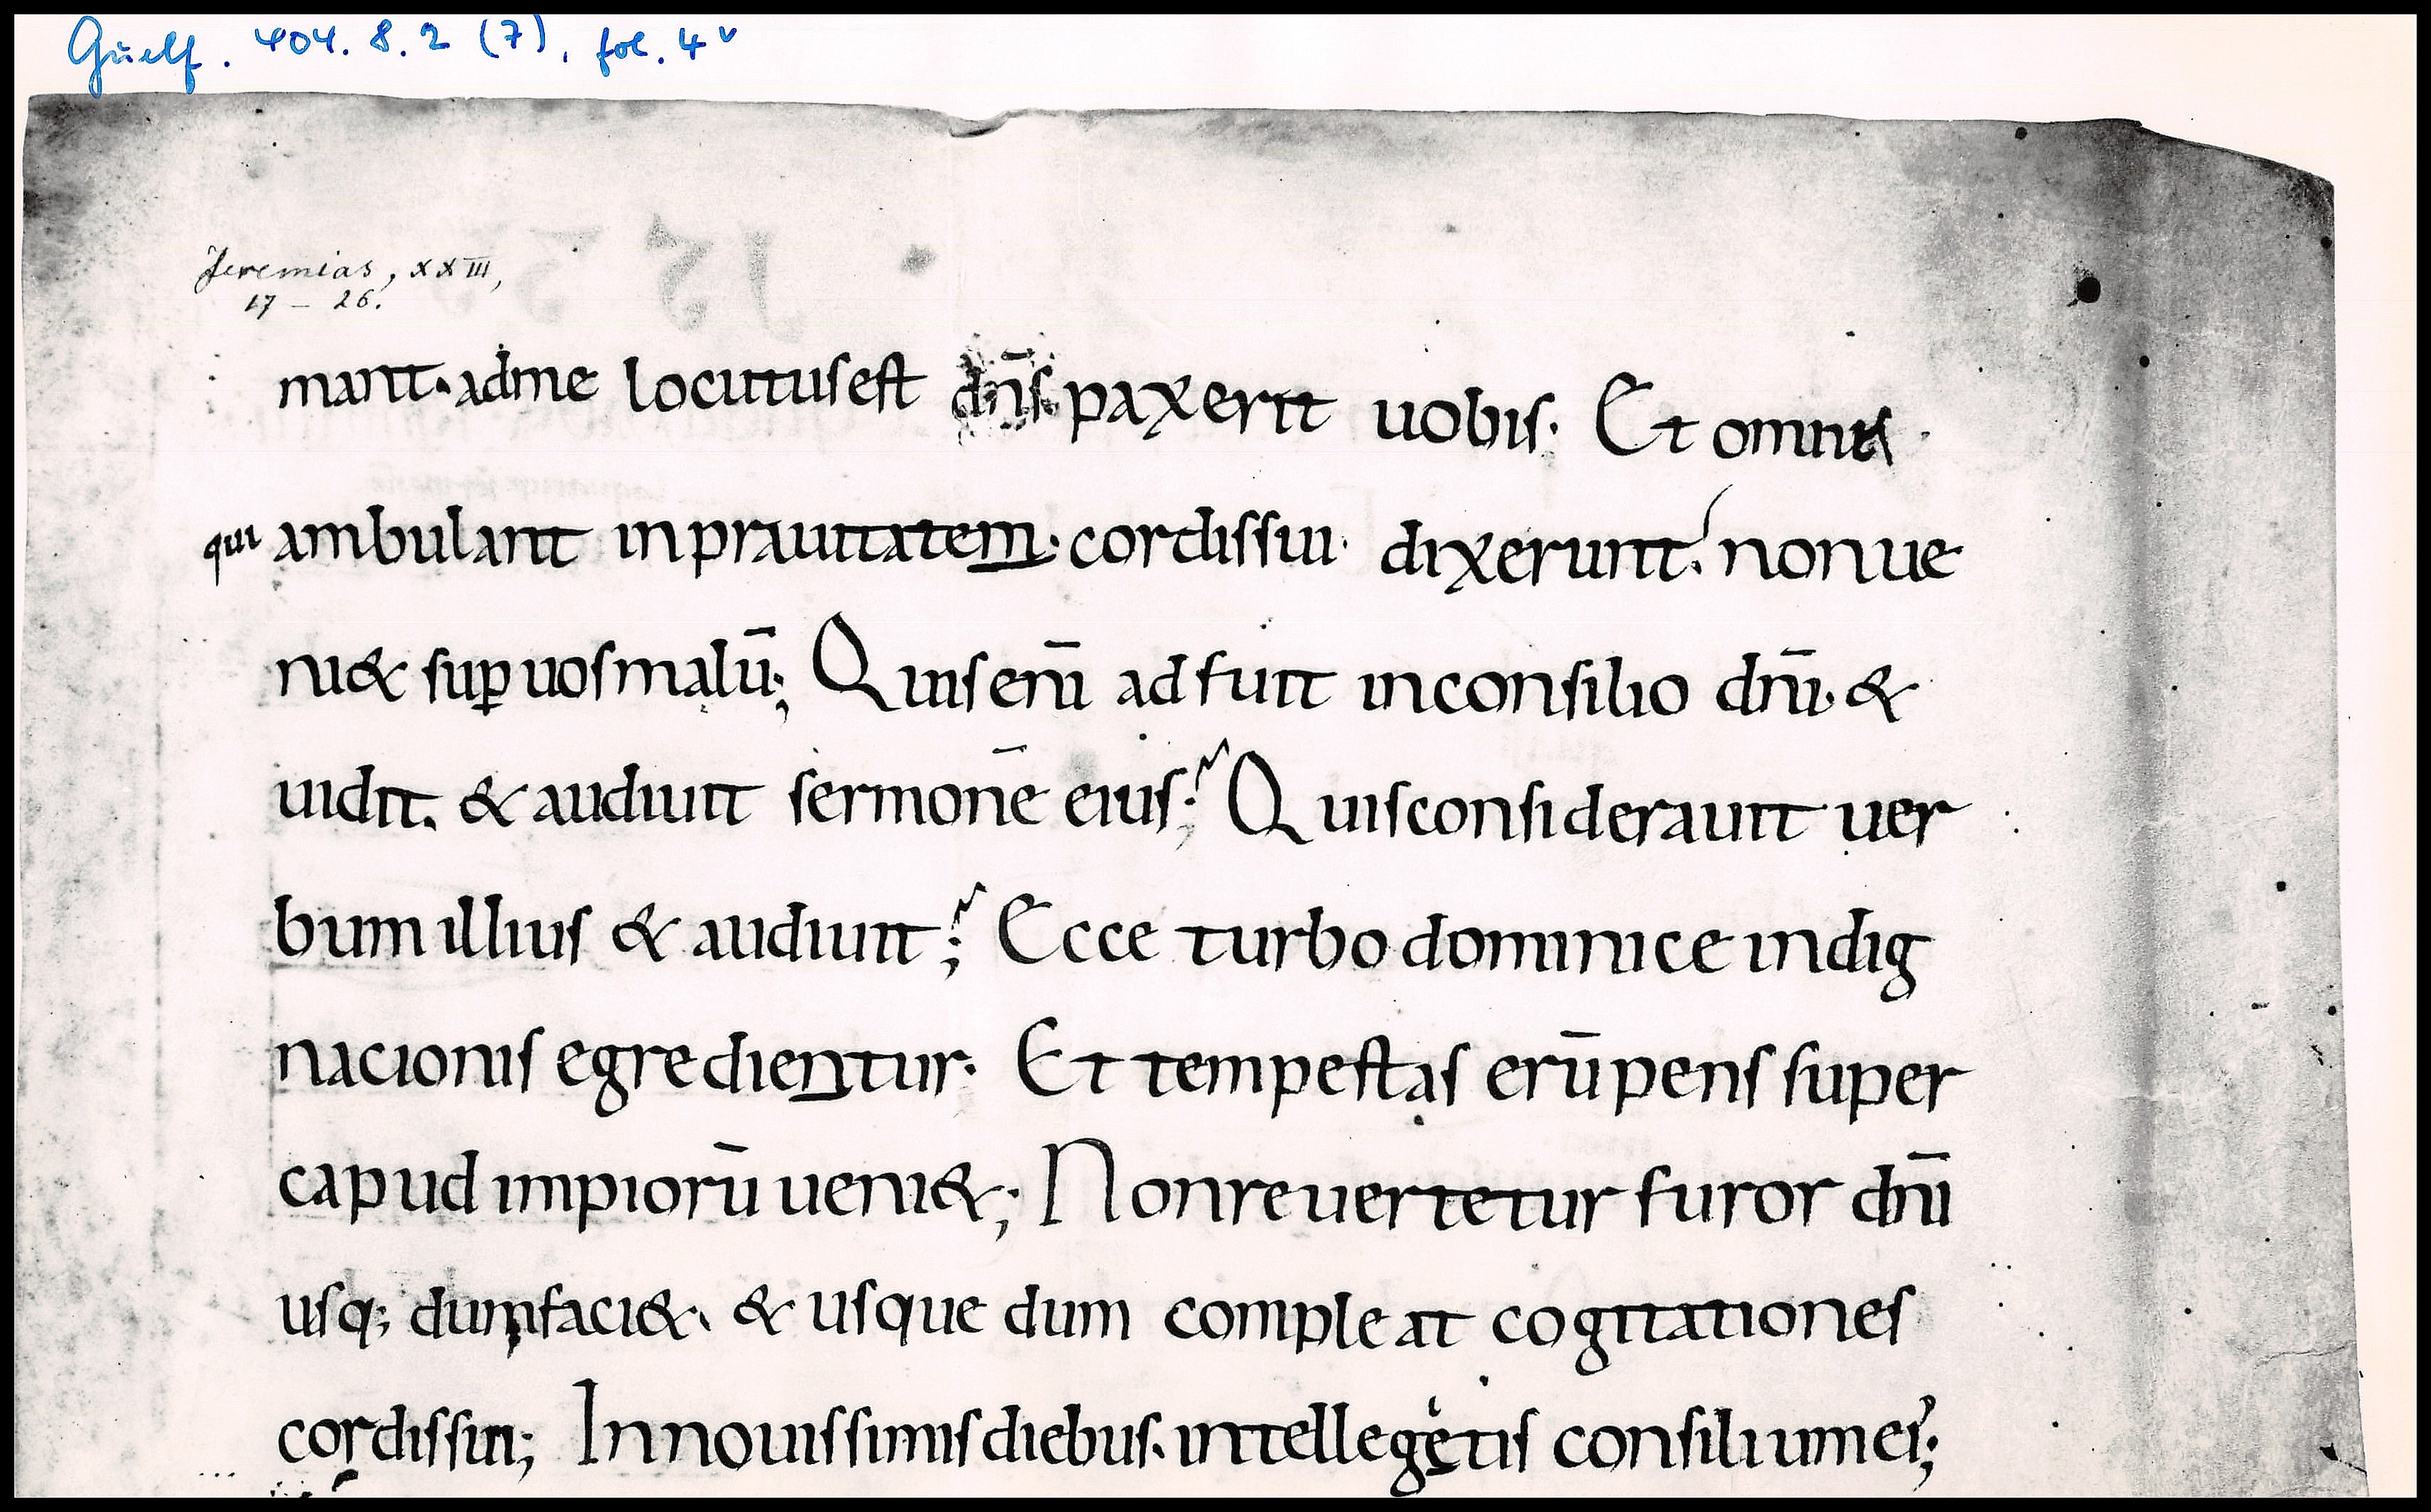 Guelf. 404. 8. 2 (7), fol. 4v
Jeremias, XXIII,
17 – 26.
mant· adme locutus est dn̄s· pax erit uobis· Et omnis
qui ambulant inprauitatem· cordissui· dixerunt· nonue
ni& sup̱ uosmalū; Quisenī adfuit inconsilio dn̄i· &
uidit. & audiuit sermonē eius; Quisconsiderauit uer
bum illius & audiuit; Ecce turbo dominice indig
nacionis egredientur· Et tempestas erūpens super
capud impiorū ueni&; Nonreuertetur furor dn̄i
usq; dum faci&· & usque dum compleat cogitationes
cordissui; Innouissimisdiebus· intellegetis consilium ei᾽;